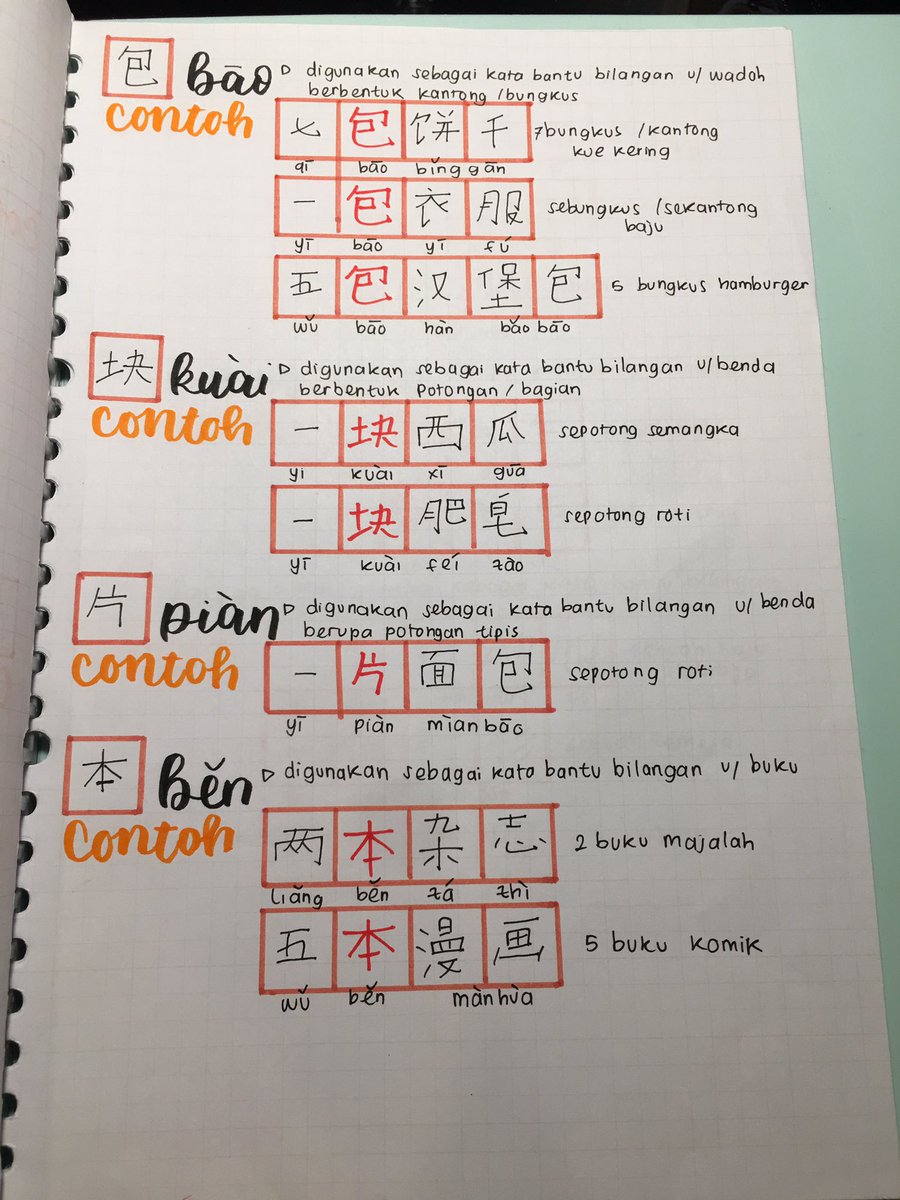 包 bāo ▷ digunakan sebagai kata bantu bilangan u/ wadoh
berbentuk kantong /bungkus
contoh
七 包 饼 千 7 bungkus /kantong
kue kering
qī bāo bǐng gān
一 包 衣 服 sebungkus /sekantong
baju
yī bāo yī fú
五 包 汉 堡 包 5 bungkus hamburger
wǔ bāo hàn bǎo bāo
块 kuài ▷ digunakan sebagai kata bantu bilangan u/benda
berbentuk potongan / bagian
contoh
一 块 西 瓜 sepotong semangka
yi kuài xī guā
一 块 肥 皂 sepotong roti
yī kuài feí zào
片 piàn ▷ digunakan sebagai kata bantu bilangan u/ benda
berupa potongan tipis
contoh
一 片 面 包 sepotong roti
yī piàn mìan bāo
本 běn ▷ digunakan sebagai kata bantu bilangan u/ buku
contoh
两 本 杂 志 2 buku majalah
liǎng běn zá zhì
五 本 漫 画 5 buku komik
wǔ běn màn hùa